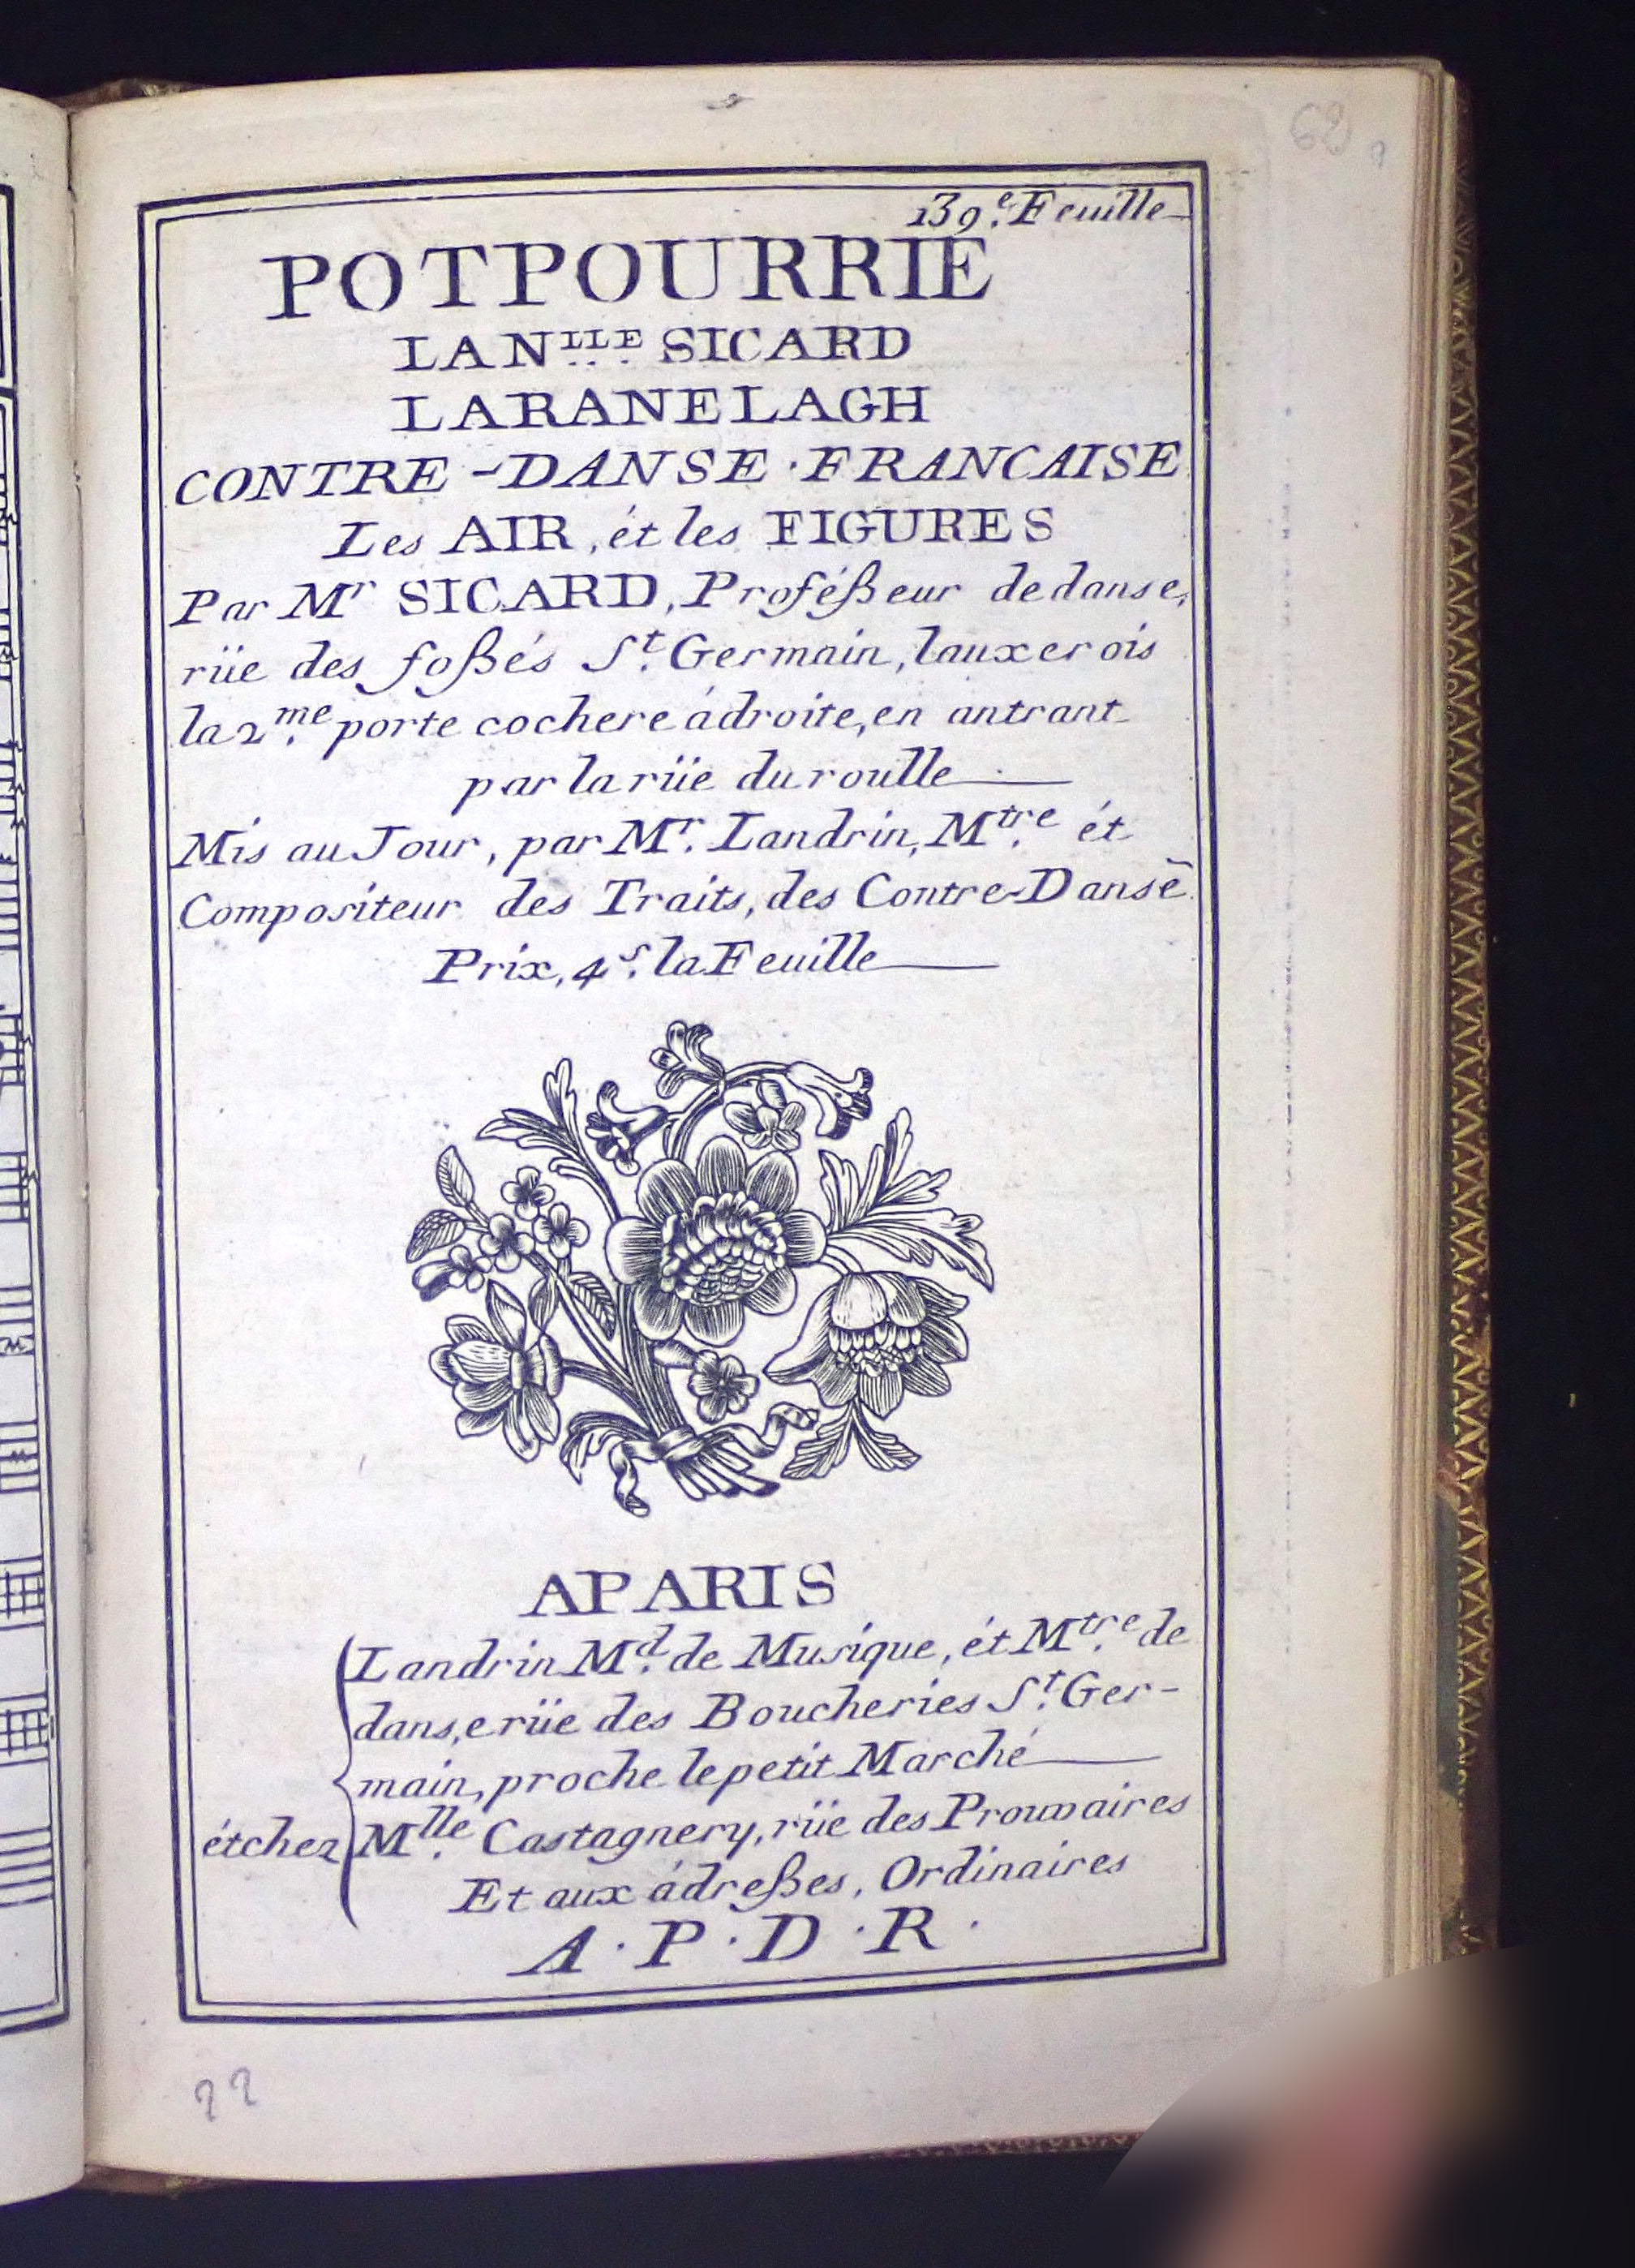 62
139.e Feuille
POTPOURRIE
LA NLLE SICARD
LA RANELAGH
CONTRE-DANSE FRANCAISE
Les AIR, ét les FIGURES
Par Mr SICARD, Proféßeur de danse,
rüe des foßés St. Germain, lauxerois
la 2.me porte cochere á droite, en antrant
par la rüe du roulle
Mis au Jour, par Mr. Landrin, Mtre. ét
Compositeur des Traits, des Contre-Dansẽ
Prix, 4s. la Feuille
A PARIS
Landrin Md. de Musique, ét Mtre. de
dans,e rüe des Boucheries St. Ger-
main, proche le petit Marché
ét chez Mlle. Castagnery, rüe des Prouvaires
Et aux ádreßes, Ordinaires
A · P · D · R ·